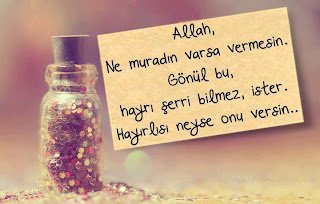 Allah,
Ne muradın varsa vermesin.
Gönül bu,
hayrı şerri bilmez, ister.
Hayırlısı neyse onu versin..